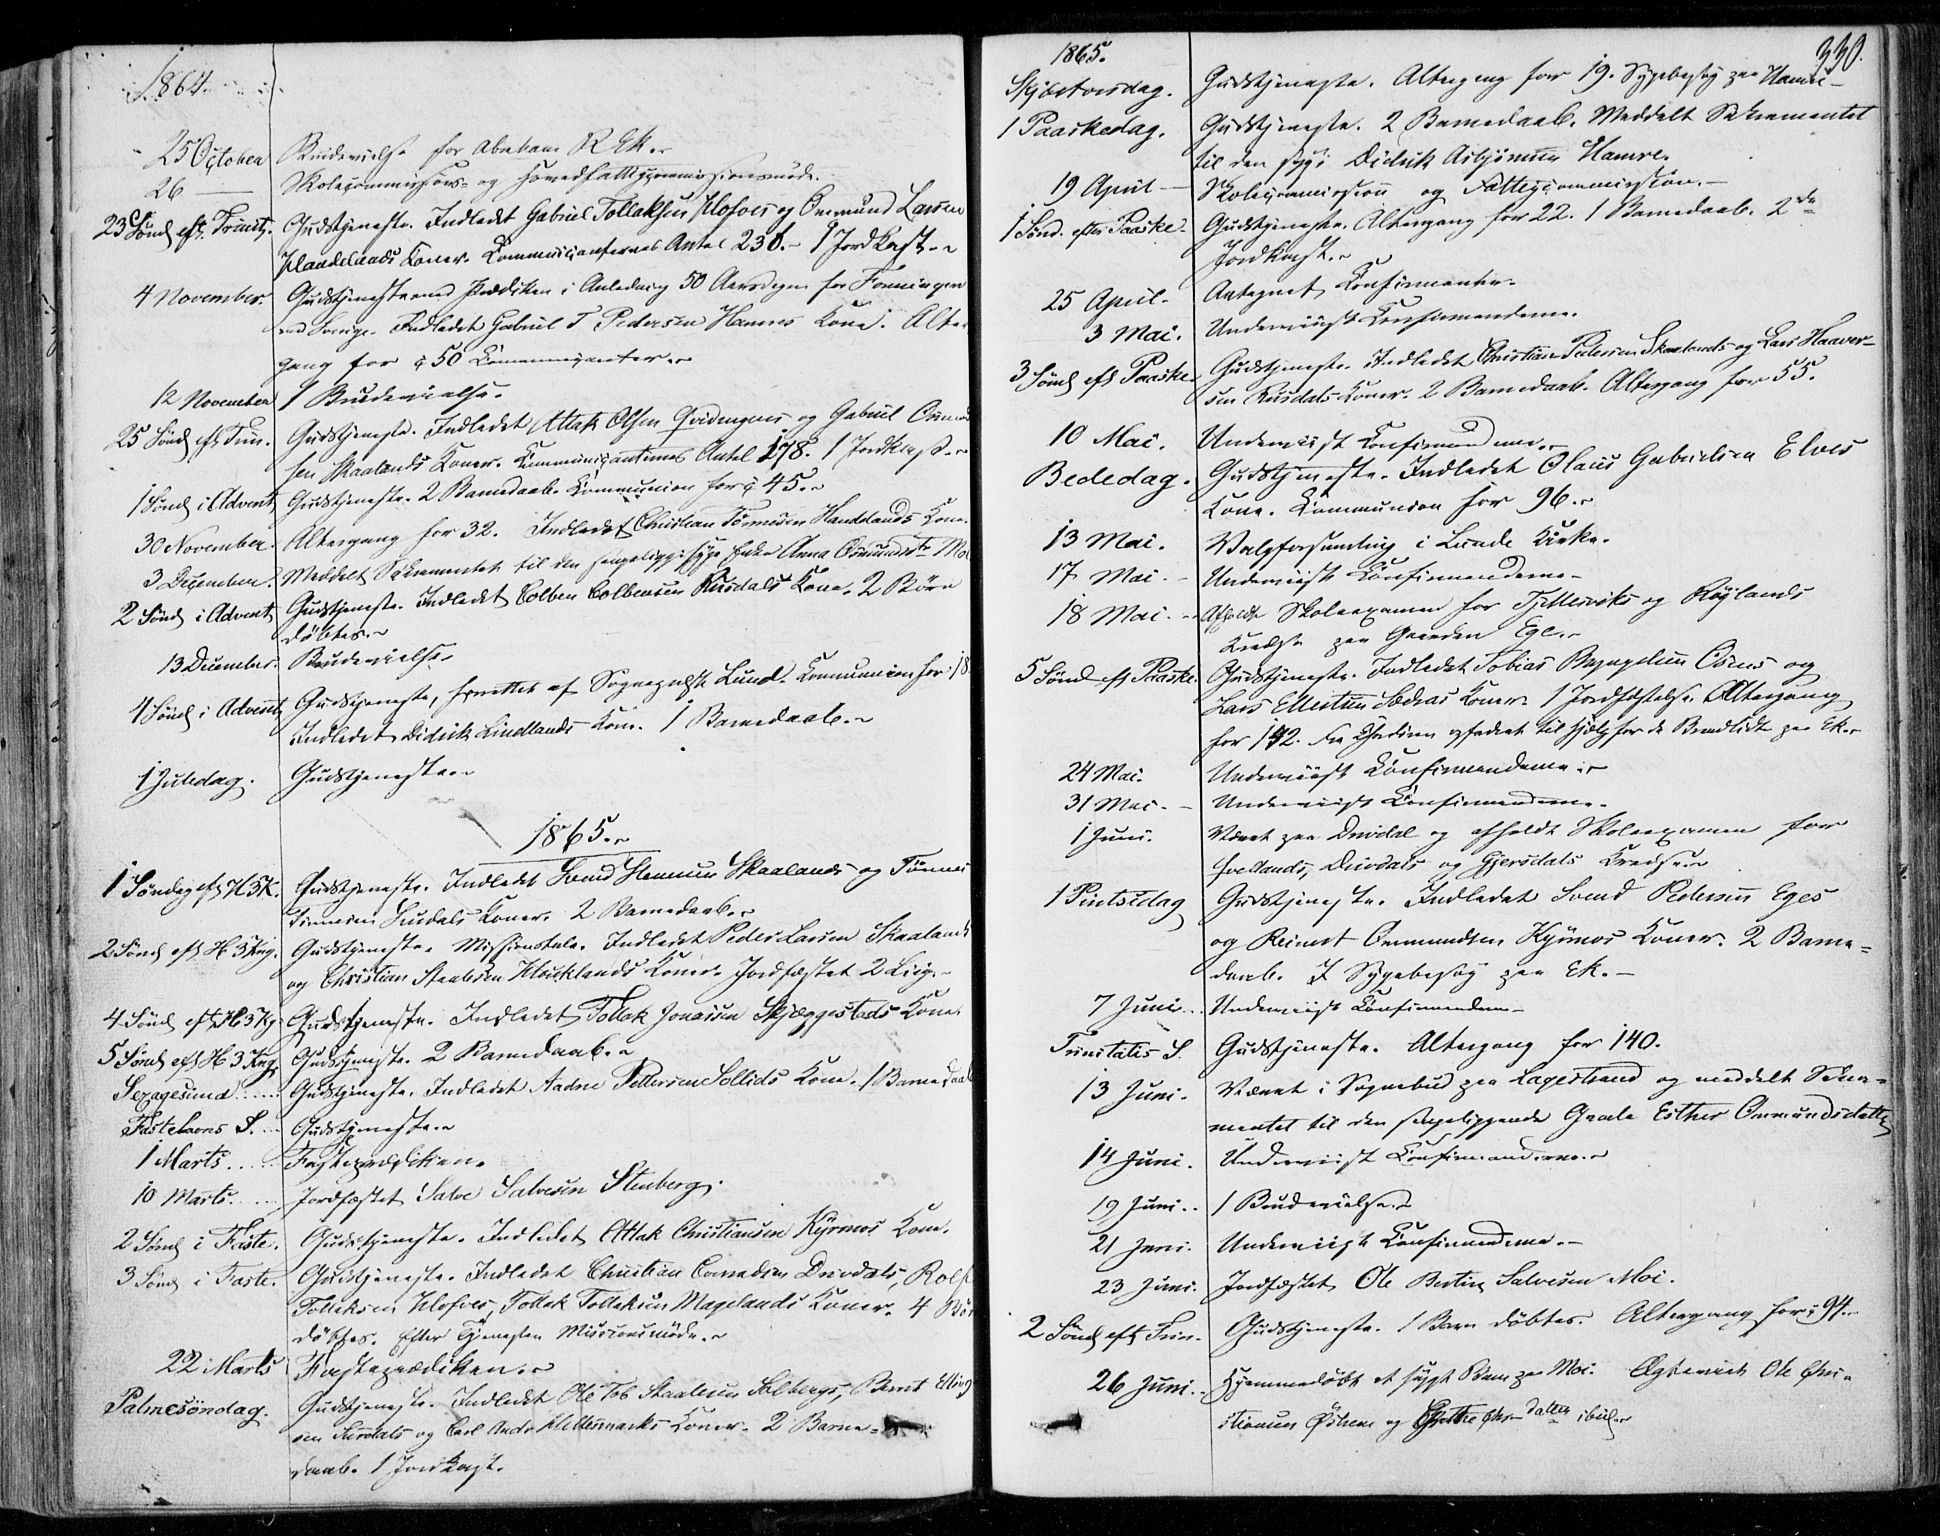 1864.
25 October Brudevielse for Abraham R Ek.
26 — Skolecommissions- og Hovedfattigcommissionsmøde.
23 Sönd. eft. Trinit. Gudstjeneste. Indledet Gabriel Tollaksen Klofves og Ommund Larsen
Haadelands Koner. Communicanternes Antal 230. 1 Jordkast.
4 November. Gudstjeneste med Prædiken i Anledning 50 Aarsdagen for Foreningen
med Sverrige. Indledet Gabriel T Pedersen Hamres Kone. Alter
gang for 50 Communicanter.
12 November 1 Brudevielse.
25 Sönd eft Trin. Gudstjeneste. Indledet Attak Olsen Qvidengenes og Gabriel Ommund
sen Skaalands Koner. Communicanternes Antal 178. 1 Jordkast.
1 Sönd i Advent Gudstjeneste. 2 Barnedaab. Communion for 45.
30 November. Altergang for 32. Indledet Christian Tönnesen Handelands Kone.
3 December. Meddelt Sakramentet til den sengeliggende syge Enke Anna Osmundsdtr Moi
2 Sönd i Advent Gudstjeneste. Indledet Colben Colbensen Rusdals Kone. 2 Börn
döbtes.
13 December. Brudevielse.
4 Sönd i Advent Gudstjeneste, forrettet af Sognepræst Lund. Communion for 18
Indledet Didrik Lindlands Kone. 1 Barnedaab.
1 Juledag. Gudstjeneste.
1865.
1 Söndag eft H3K. Gudstjeneste. Indledet Svend Skaalands og Tönnes
Tönnesen Sudals Koner. 2 Barnedaab.
2 Sönd eft H3Kng. Gudstjeneste. Missionstale. Indledet Peder Larsen Skaalands
og Christian Staalesen Hauklands Koner. Jordfæstet 2 Liig.
4 Sönd eft H3Kg Gudstjeneste. Indledet Tollak Jonassen Skjæggestads Kone.
5 Sönd eft H3Kng. Gudstjeneste. 2 Barnedaab.
Sexagesima. Gudstjeneste. Indledet Aadne Pettersen Sollids Kone. 1 Barnedaab
Fastelavns S. Gudstjeneste.
1 Marts. Fasteprædiken.
10 Marts. Jordfæstet Salve Salvesen Stenberg.
2 Sönd i Faste. Gudstjeneste. Indledet Attak Christiansen Kyrmos Kone.
3 Sönd i Faste. Gudstjeneste. Indledet Christian Conradsen Drivdals, Rolf
Tollaksen Klofves, Tollak Tollaksen Magelands Koner. 4 Bör
döbtes. Efter Tjenesten Missionsmöde.
22 Marts Fasteprædiken.
Palmesöndag. Gudstjeneste. Indledet Ole Tob Staalesen Solbergs, Bernt Elling
sen Surdals og Carl Andr Koner. 2 Barne-
daab. 1 Jordkast.
330.
1865.
Skjærtorsdag. Gudstjeneste. Altergang for 19. Sygebesøg paa Hamre
1 Paaskedag. Gudstjeneste. 2 Barnedaab. Meddelt Sakramentet
til den syge Didrik Asbjörnsen Hamre.
19 April — Skolecommission og Fattigcommission.
1 Sönd. efter Paaske. Gudstjeneste. Altergang for 22. 1 Barnedaab. 2de
Jordkast.
25 April. Antegnet Confirmanter.
3 Mai. Underviist Confirmanderne.
3 Sönd eft Paaske. Gudstjeneste. Indledet Christian Pedersen Skaalands og Lars Haaver-
sen Rusdals Koner. 2 Barnedaab. Altergang for 55.
10 Mai. Underviist Confirmanderne.
Bededag. Gudstjeneste. Indledet Olaus Gabrielsen Elves
Kone. Communion for 96.
13 Mai. Valgforsamling i Lunde Kirke.
17 Mai. Underviist Confirmanderne.
18 Mai. Afholdt Skoleexamen for Tjellesviks og Röylands
Kredse paa Gaarden Ege.
5 Sönd eft Paaske. Gudstjeneste. Indledet Tobias Osens og
Lars Ellertsen Koner. 1 Jordfæstelse. Altergang
for 192. En Offerdiem opfordret til Hjælp for de Brandlidte paa Ek.
24 Mai. Underviist Confirmanderne.
31 Mai. Underviist Confirmanderne.
1 Juni. Været paa Drivdal og afholdt Skoleexamen for
Hovlands, Drivdals og Gjersdals Kredse.
1 Pintsedag Gudstjeneste. Indledet Svend Pedersen Eges
og Reinert Ommundsen Kyrmos Koner. 2 Barne-
daab. I Sygebesøg paa Ek.
7 Juni. Underviist Confirmanderne.
Trinitatis S. Gudstjeneste. Altergang for 140.
13 Juni. Været i Sognebud paa Lagestrand og meddelt Sakra-
mentet til den sengeliggende Gamle Esther Ommundsdatter
14 Juni. Underviist Confirmanderne.
19 Juni. 1 Brudevielse.
21 Juni. Underviist Confirmanderne.
23 Juni. Jordfæstet Ole Bertin Salvesen Moi.
2 Sönd eft Trin. Gudstjeneste. 1 Barn döbtes. Altergang for 94.
26 Juni. Hjemmedöbt et sygt Barn paa Moi. Ægteviet Ole Chri-
stiansen Östrem og Grethe Chr datter ibid.